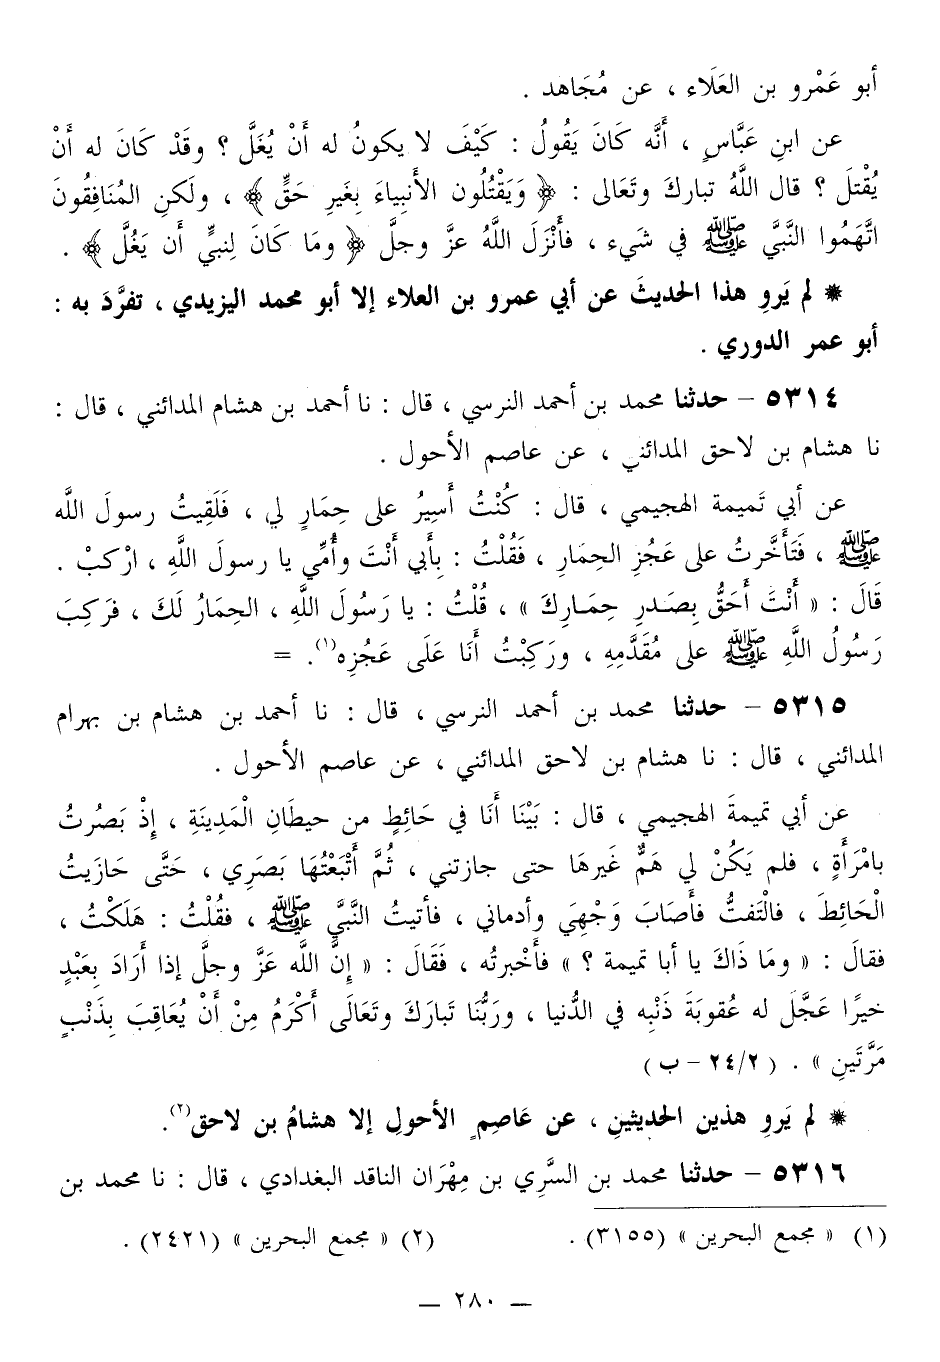 أبو عَمْرو بن العَلَاء ، عن مُجَاهد .
عن ابنِ عَبَّاسٍ ، أَنَّه كَانَ يَقُولُ : كَيْفَ لا يكونُ له أَنْ يُغَلَّ ؟ وقَدْ كَانَ له أَنْ
يُقْتلَ ؟ قال اللَّهُ تباركَ وتَعَالى : ﴿ وَيَقْتُلُون الأَنبِياءَ بِغَيرِ حَقٍّ ﴾ ، ولَكنِ المُنَافِقُونَ
اتَّهَمُوا النَّبيَّ ﷺ في شَيء ، فأَنْزَلَ اللَّهُ عزَّ وجلَّ ﴿ ومَا كَانَ لِنبيٍّ أَن يَغُلَّ ﴾ .
* لم يَروِ هذا الحديثَ عن أبي عمرو بن العلاء إلا أبو محمد اليزيدي ، تفرَّدَ به :
أبو عمر الدوري .
٥٣١٤ – حدثنا محمد بن أحمد النرسي ، قال : نا أحمد بن هشام المدائني ، قال :
نا هشام بن لاحق المدائني ، عن عاصم الأحول .
عن أبي تَميمة الهجيمي ، قال : كُنْتُ أَسِيرُ على حِمَارٍ لي ، فَلَقِيتُ رسولَ الله
ﷺ ، فَتَأَخَّرتُ على عَجُزِ الحِمَارِ ، فَقُلْتُ : بِأَبي أَنْتَ وأُمِّي يا رسولَ اللَّهِ ، ارْكبْ .
قَالَ : « أَنْتَ أَحَقُّ بِصَدرِ حِمَـارِكَ » ، قُلْتُ : يا رَسُولَ اللَّهِ ، الحِمَارُ لَكَ ، فرَكِبَ
رَسُولُ اللَّهِ ﷺ على مُقَدَّمِهِ ، ورَكِبْتُ أَنَا عَلَى عَجُزِه(١). =
٥٣١٥ – حدثنا محمد بن أحمد النرسي ، قال : نا أحمد بن هشام بن بهرام
المدائني ، قال : نا هشام بن لاحق المدائني ، عن عاصم الأحول .
عن أبي تميمةَ الهجيمي ، قال : بَيْنَا أَنَا في حَائِطٍ من حيطَانِ الْمَدِينَةِ ، إِذْ بَصُرتُ
بامْرَأَةٍ ، فلم يَكُنْ لي هَمٌّ غَيرهَا حتى جازتني ، ثُمَّ أَتْبَعْتُهَا بَصَرِي ، حَتَّى حَازَيتُ
الْحَائِطَ ، فالْتَفتُّ فأَصَابَ وَجْهِيَ وأدماني ، فأتيتُ النَّبيَّ ﷺ ، فقُلْتُ : هَلَكْتُ ،
فقالَ : « ومَا ذَاكَ يا أبا تميمة ؟ » فأَخْبرتُه ، فَقَالَ : « إِنَّ اللَّه عَزَّ وجلَّ إذا أَرَادَ بِعَبْدٍ
خيرًا عَجَّلَ له عُقوبَةَ ذَنْبِه في الدُّنيا ، ورَبُّنَا تَبارَكَ وتَعَالَى أَكْرَمُ مِنْ أَنْ يُعَاقِبَ بِذَنْبٍ
مَرَّتَينِ » . ( ٢٤/٢ – ب )
* لم يَروِ هذين الحديثينِ ، عن عَاصِمٍ الأحولِ إلا هشامُ بن لاحق(٢).
٥٣١٦ – حدثنا محمد بن السَّرِي بن مِهْرَان الناقد البغدادي ، قال : نا محمد بن
(١) « مجمع البحرين » (٣١٥٥) . (٢) « مجمع البحرين » (٢٤٢١) .
— ٢٨٠ —